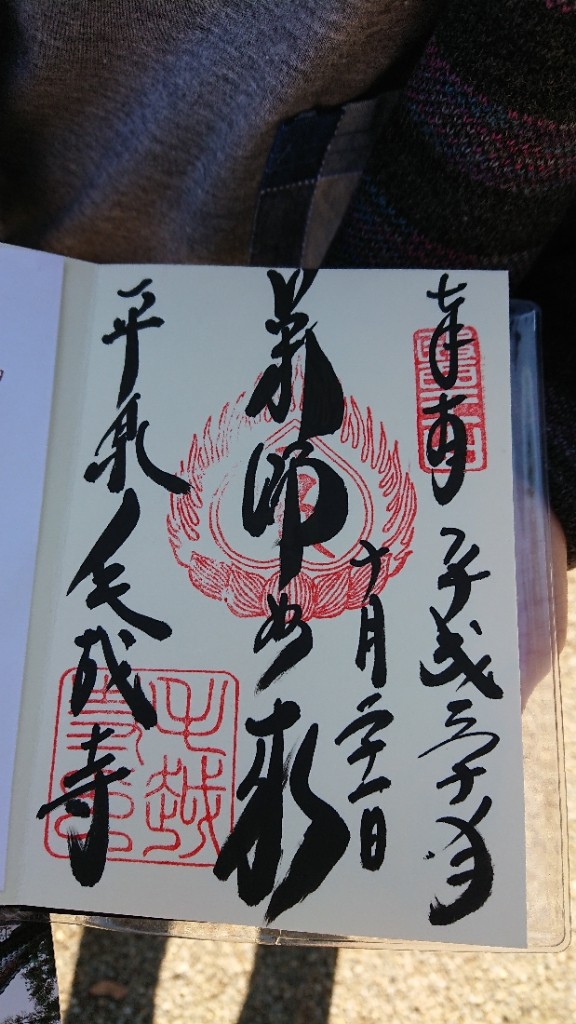 奉拝 平成三十年
十月二十一日
薬師如来
平泉 毛越寺
毛越
寺印